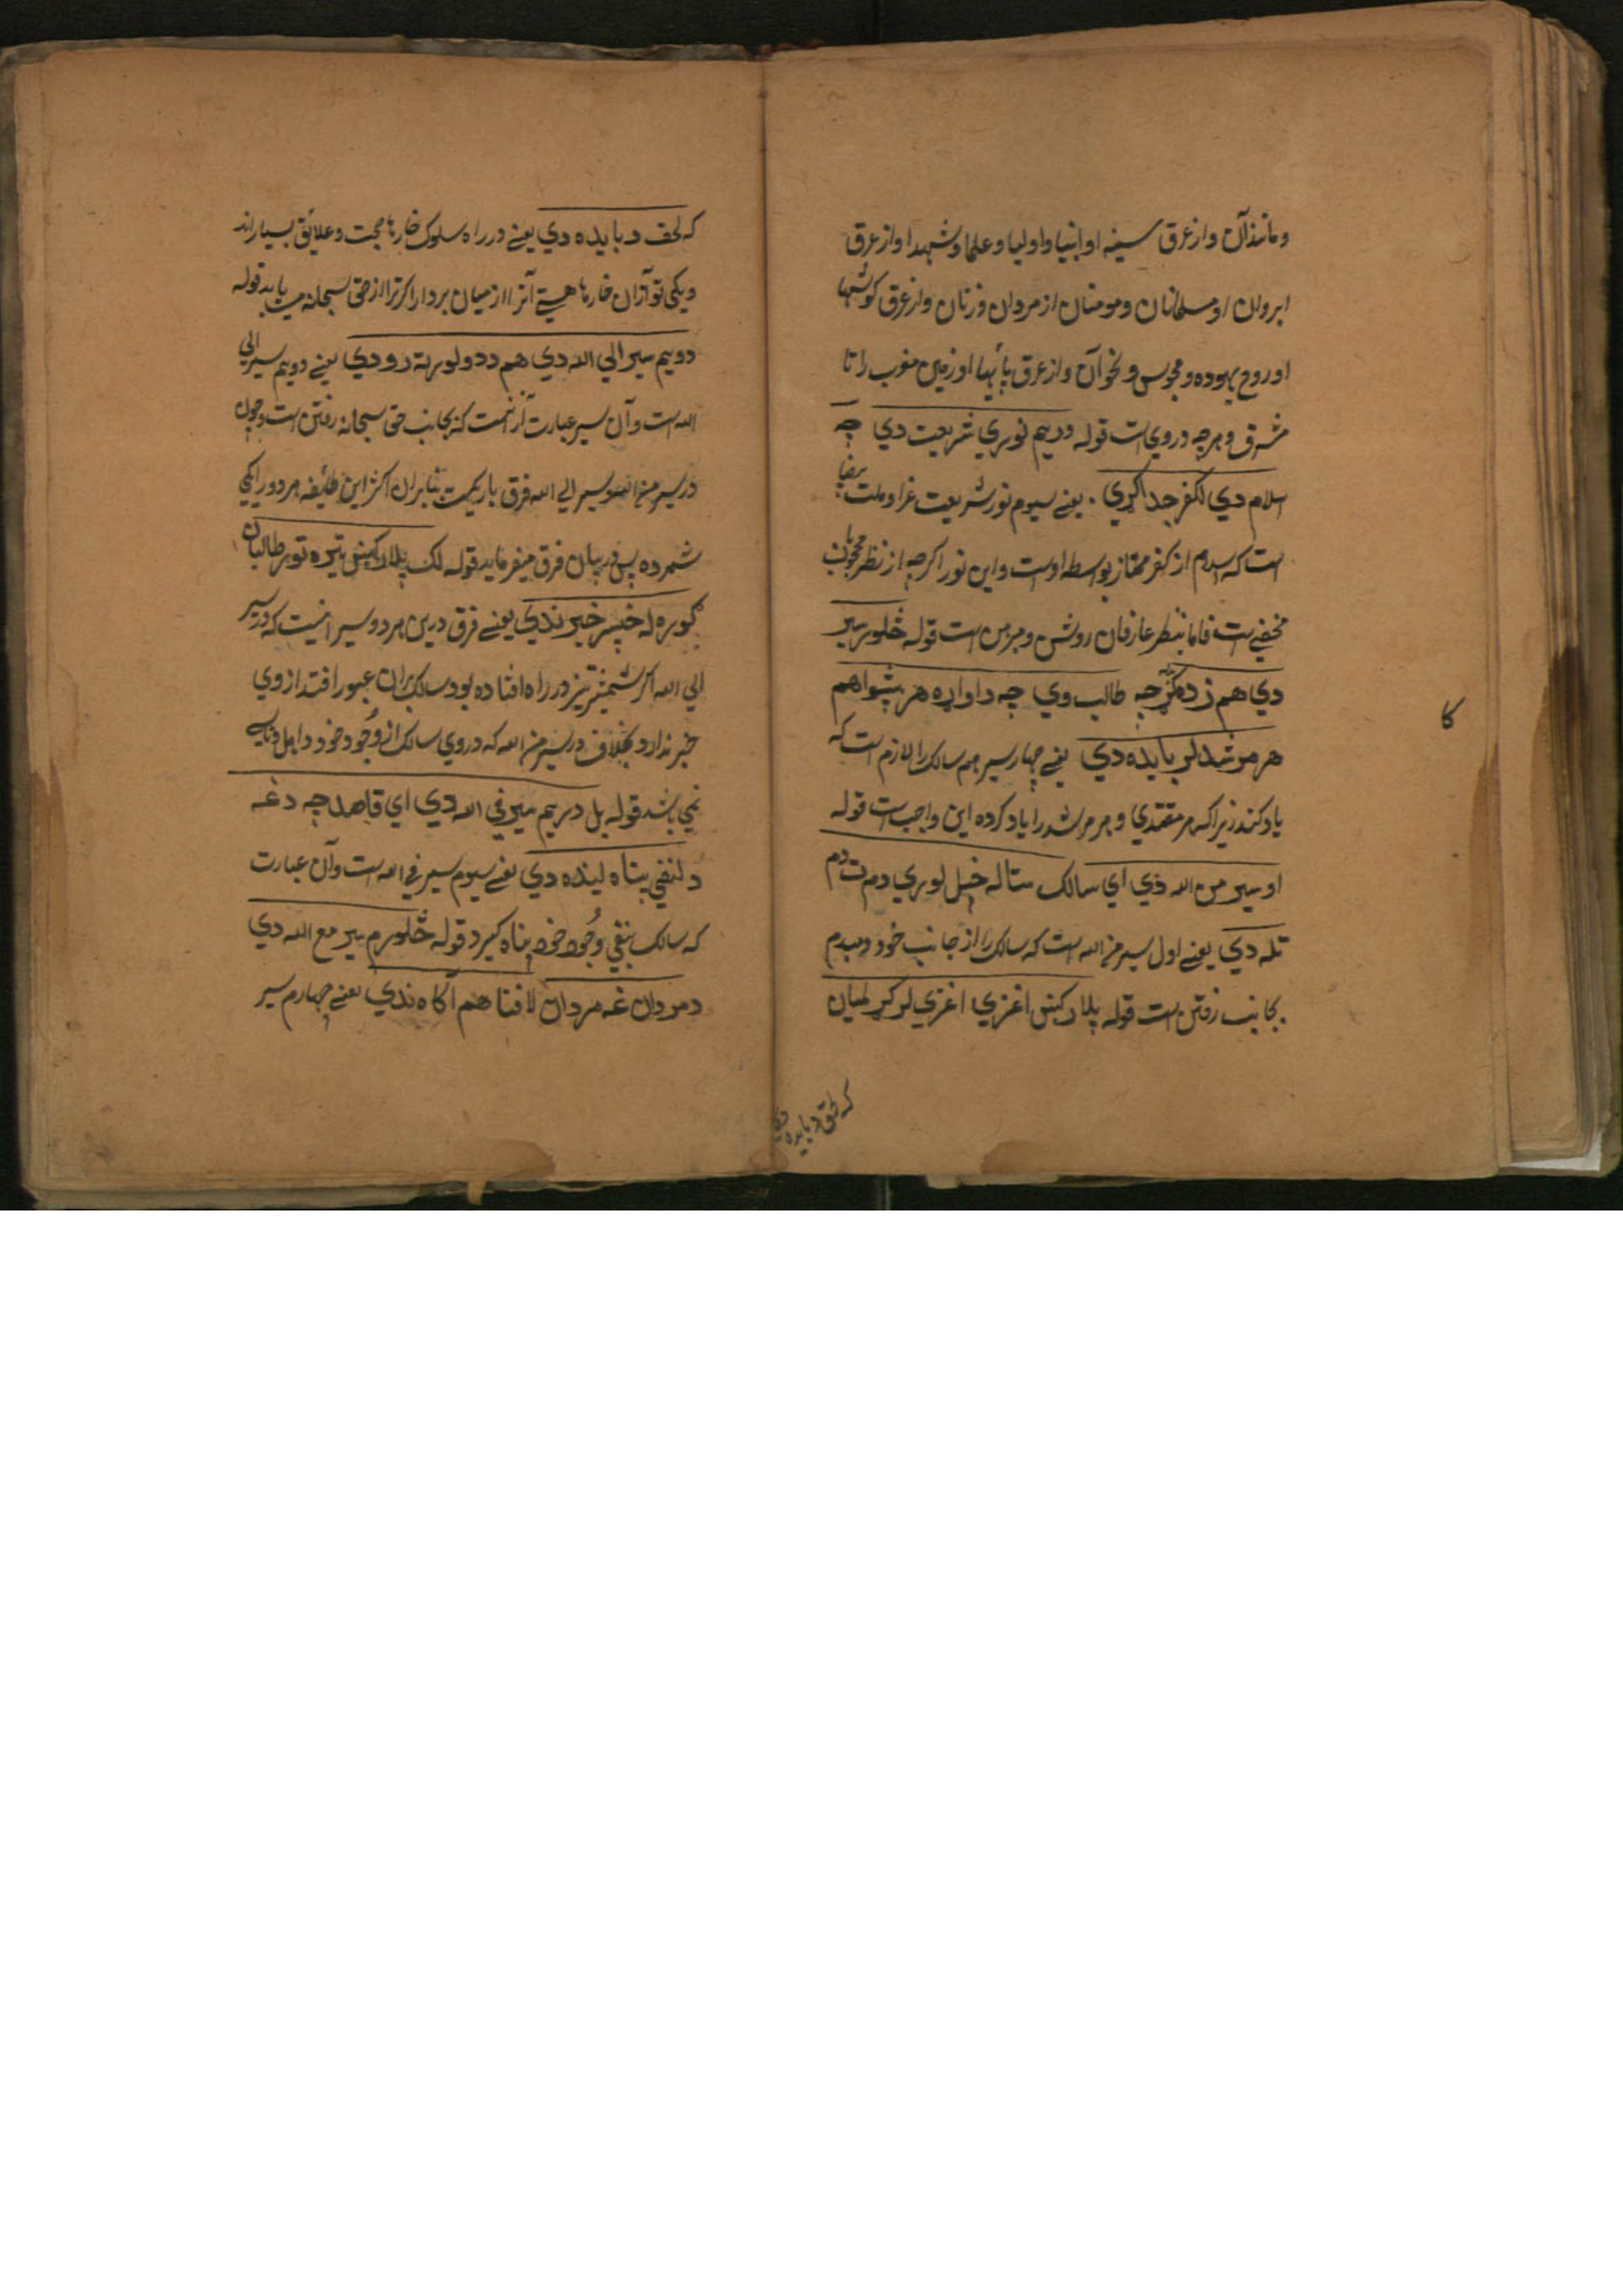 و مانند آن و از عرق سینه او انبیا و اولیا و علما و شهدا و از عرق
ابروان او مسلمانان و مومنان از مردان و زنان و از عرق کوشها
او روح یهوده و مجوس و نحو آن و از عرق پایها او زمین مغرب را تا
مشرق و هرچه در وی است قوله دریم نوري شریعت دي چه
اسلام دي لکفر جدا کړي . یعنے سیوم نور شریعت غرا و ملت بیضا
است که اسلام از کفر ممتاز بواسطه اوست و این نور اکرچه از نظر محجوبان
مخفے است فاما بنظر عارفان روشن و مبرهن است قوله څلور سیر
دي هم زده کړه چه طالب وي چه دا واړه هر پیشوا هم
هر مرشد لر بایده دي یعنے چهار سیر هم سالک را لازم است که
یاد کند زیرا که هر مقتدي و هر مرشد را یاد کرده این واجب است قوله
او سیر من الله دي اي سالک ستا له خپل لوري دم ت دم
تله دي یعنے اول سیر من الله است که سالک را از جانب خود دمبدم
بجانب رفتن است قوله پلار کښ اغزي اغزي لر کړ لمیان
که لحق د بایده دي
کا
که لحق د بایده دي یعنے در راه سلوک خارها محبت و علائق بسیار اند
ویکی تو ازان خارها هستے آنرا از میان بردار اکر ترا از حق سبحانه مے باید قوله
دویم سیر الي الله دي هم د دولورته درودي یعنے دویم سیر الی
الله است و آن سیر عبارت ازنست که بجانب حق سبحانه رفتن است و چون
در سیر من الله و سیر الی الله فرق باریکیست بنابران اکثر این طائفه هر دو را یکی
شمرده پس در بیان فرق میفرماید قوله لک پلار کښ تیره تور طالبان
کوره له خپسر خبر ندي یعنے فرق درین هر دو سیر اینست که در سیر
الي الله اکر شمشیر تیز در راه افتاده بود سالک بران عبور افتد از وي
خبر ندارد بخلاف در سیر من الله که در وي سالک از وجود خود
نمي باشد قوله بل دریم سیر في الله دي اي قاصد چه دغه
د لنفي پناه لیند ه دي یعنے سیوم سیر في الله است و آن عبارت
که سالک بنفي وجود خود پناه کیرد قوله څلورم سیر مع الله دي
دمردان غه مردان لا فنا هم آکاه ندي یعنے چهارم سیر